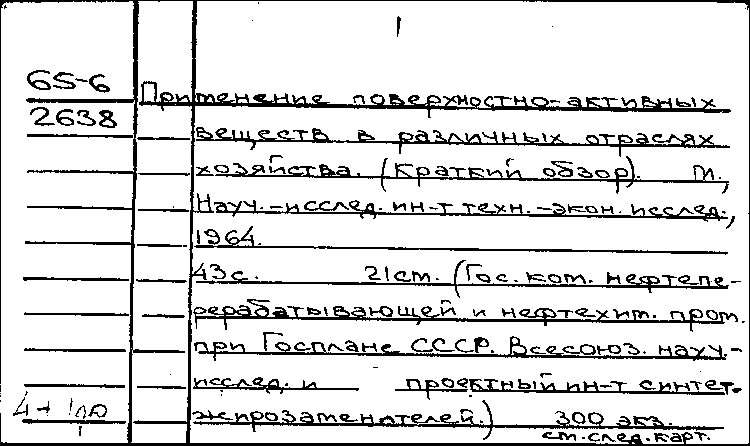 1
65-6
2638
Применение поверхностно-активных
веществ в различных отраслях
хозяйства. (Краткий обзор). М.,
Науч.-исслед. ин-т техн.-экон. исслед.,
1964.
43с. 21см. (Гос. ком. нефтепе-
рерабатывающей и нефтехим. пром.
при Госплане СССР. Всесоюз. науч.-
исслед. и проектный ин-т синтет.
жирозаменителей.) 300 экз.
4+100
1
см. след. карт.